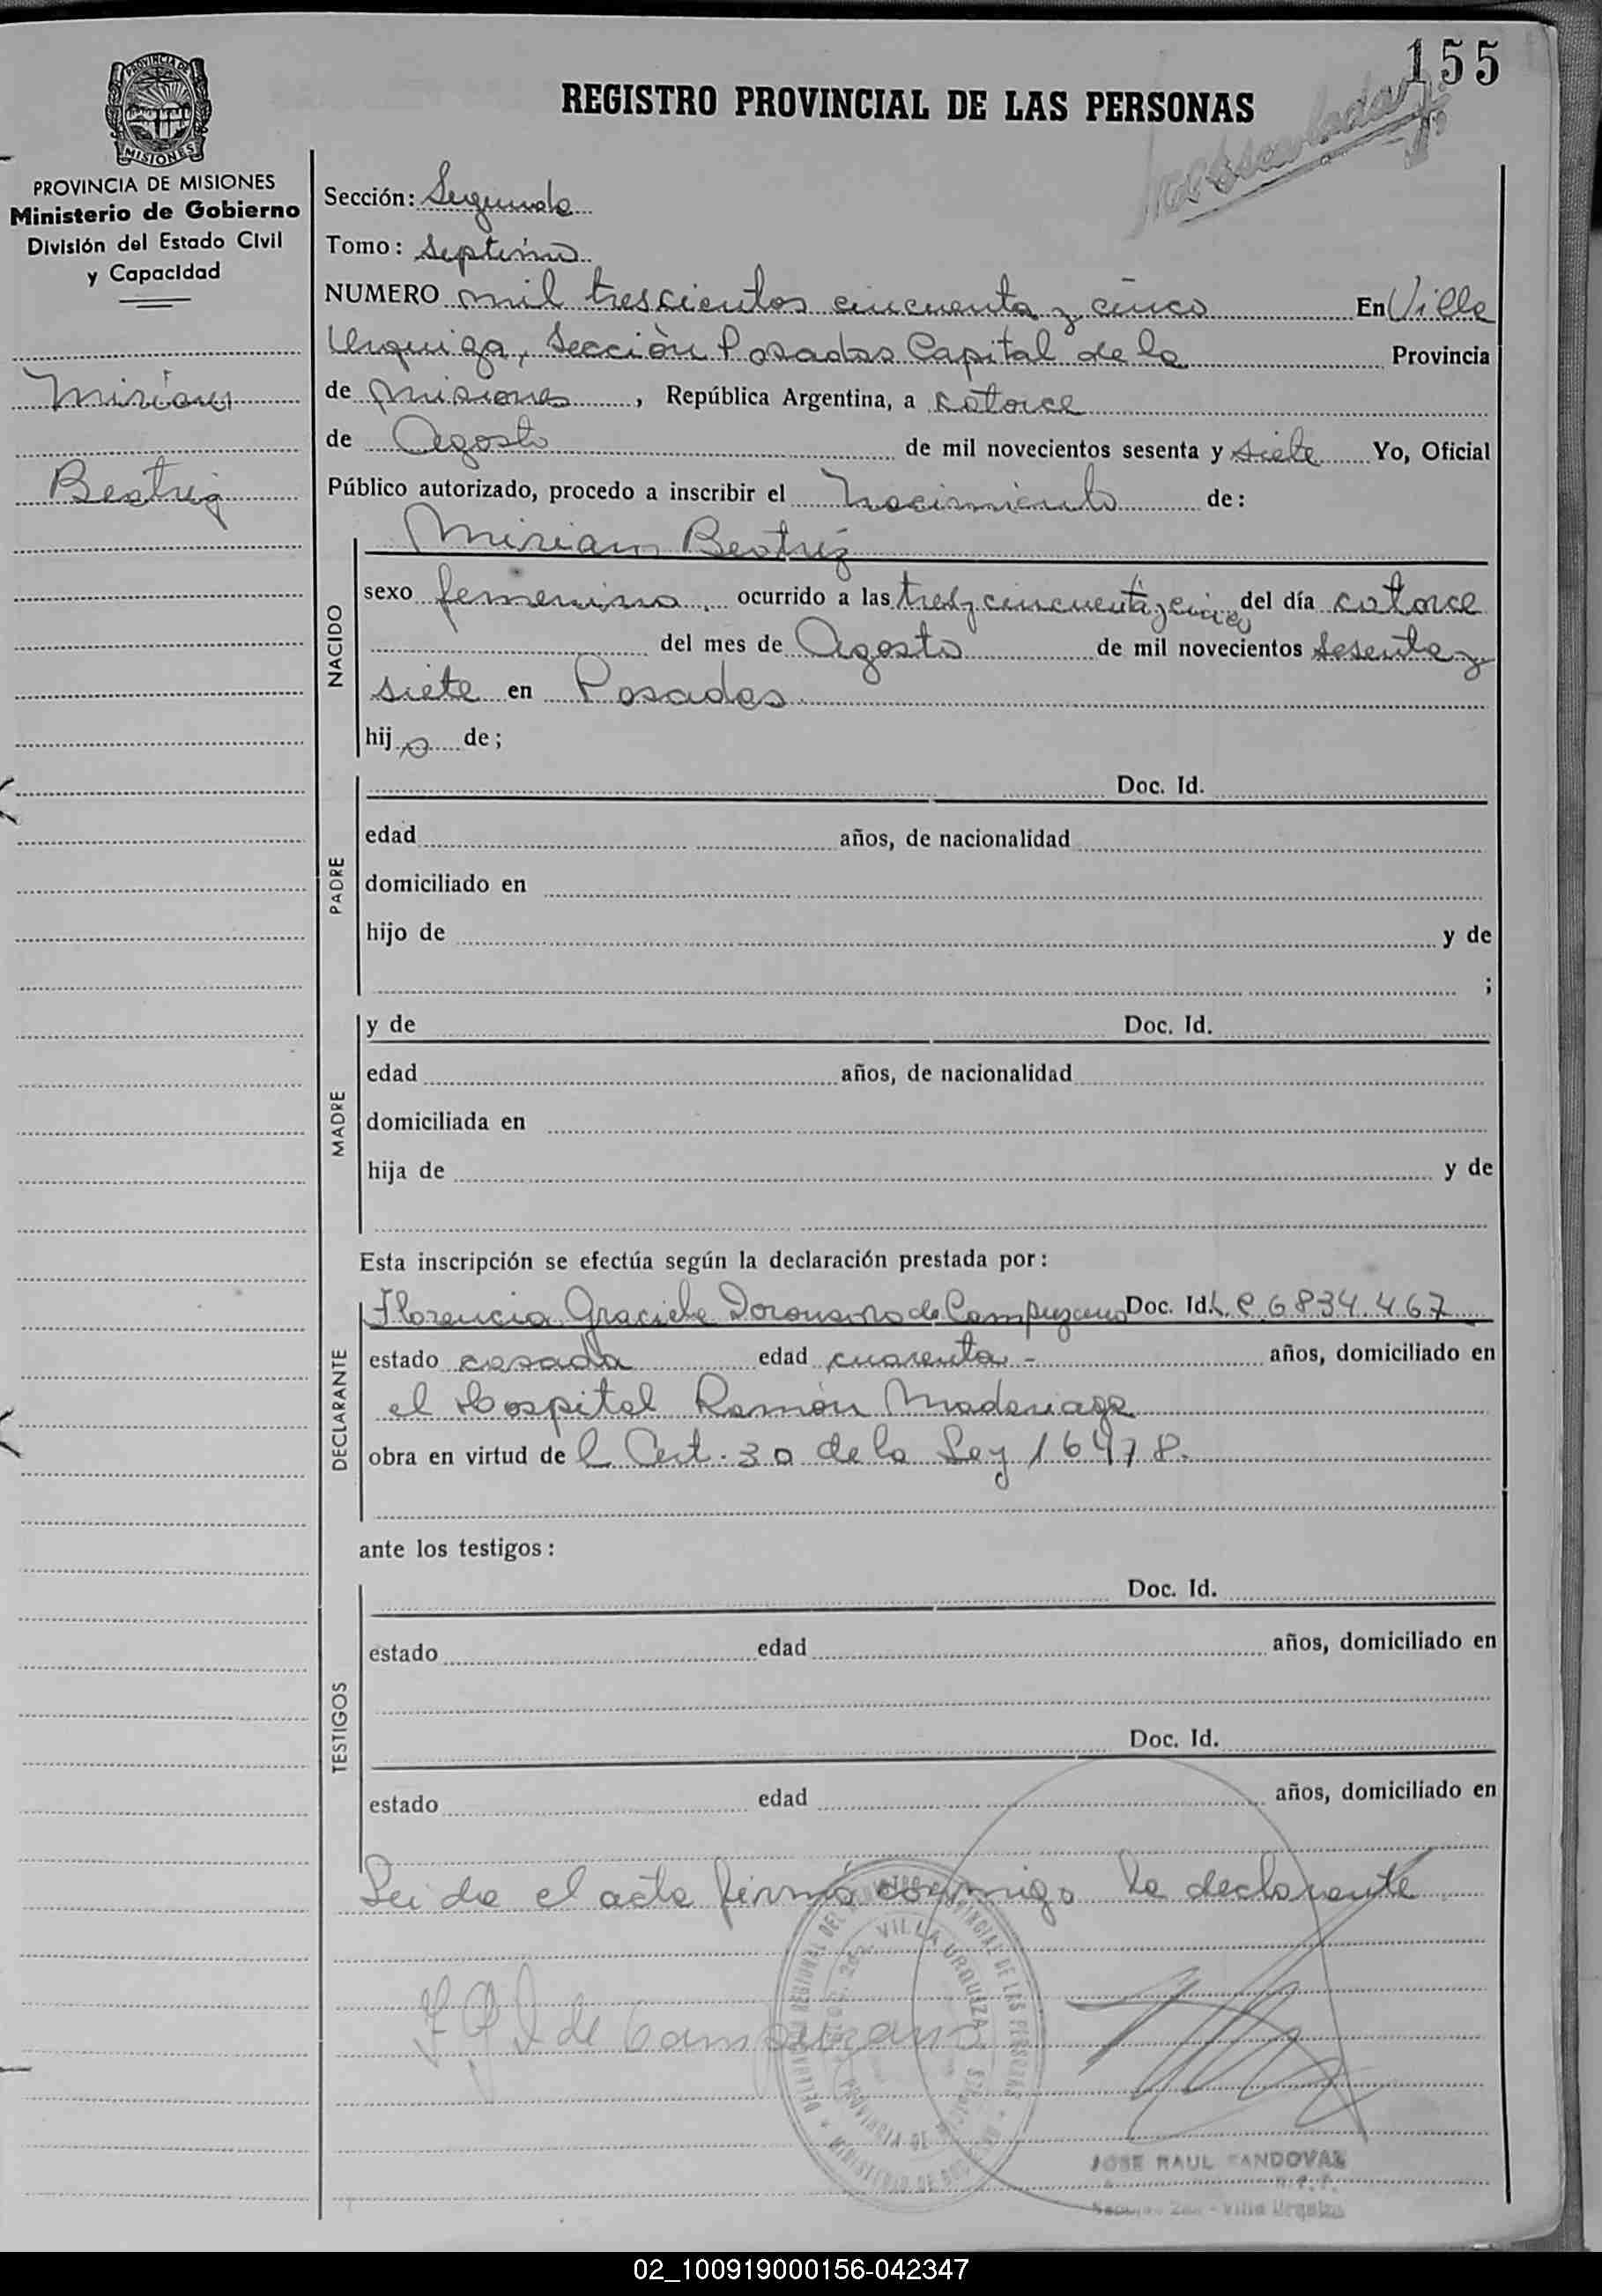 155
REGISTRO PROVINCIAL DE LAS PERSONAS
PROVINCIA DE
MISIONES
PROVINCIA DE MISIONES
Ministerio de Gobierno
División del Estado Civil
y Capacidad
Miriam
Beatriz
Sección: Segunda
Tomo: Septimo
NUMERO mil trescientos cincuenta y cinco En Villa
Urquiza, Sección Posadas Capital de la Provincia
de Misiones, República Argentina, a catorce
de Agosto de mil novecientos sesenta y siete Yo, Oficial
Público autorizado, procedo a inscribir el Nacimiento de:
NACIDO
Miriam Beatriz
sexo femenino. ocurrido a las tres y cincuenta y cinco del día catorce
del mes de Agosto de mil novecientos sesenta y
siete en Posadas
hij a de;
PADRE
Doc. Id.
edad años, de nacionalidad
domiciliado en
hijo de y de
;
MADRE
y de Doc. Id.
edad años, de nacionalidad
domiciliada en
hija de y de
Esta inscripción se efectúa según la declaración prestada por:
DECLARANTE
Florencia Graciela de Campuzano Doc. Id. L.C. 6834.467
estado casada edad cuarenta - años, domiciliado en
el Hospital Ramón Madariaga
obra en virtud de l Art. 30 de la Ley 16478.
ante los testigos:
TESTIGOS
Doc. Id.
estado edad años, domiciliado en
Doc. Id.
estado edad años, domiciliado en
Leida el acta firmó conmigo la declarante
de Campuzano
VILLA URQUIZA
PROVINCIAL DE LAS PERSONAS
JOSE RAUL SANDOVAL
Villa Urquiza
02_100919000156-042347